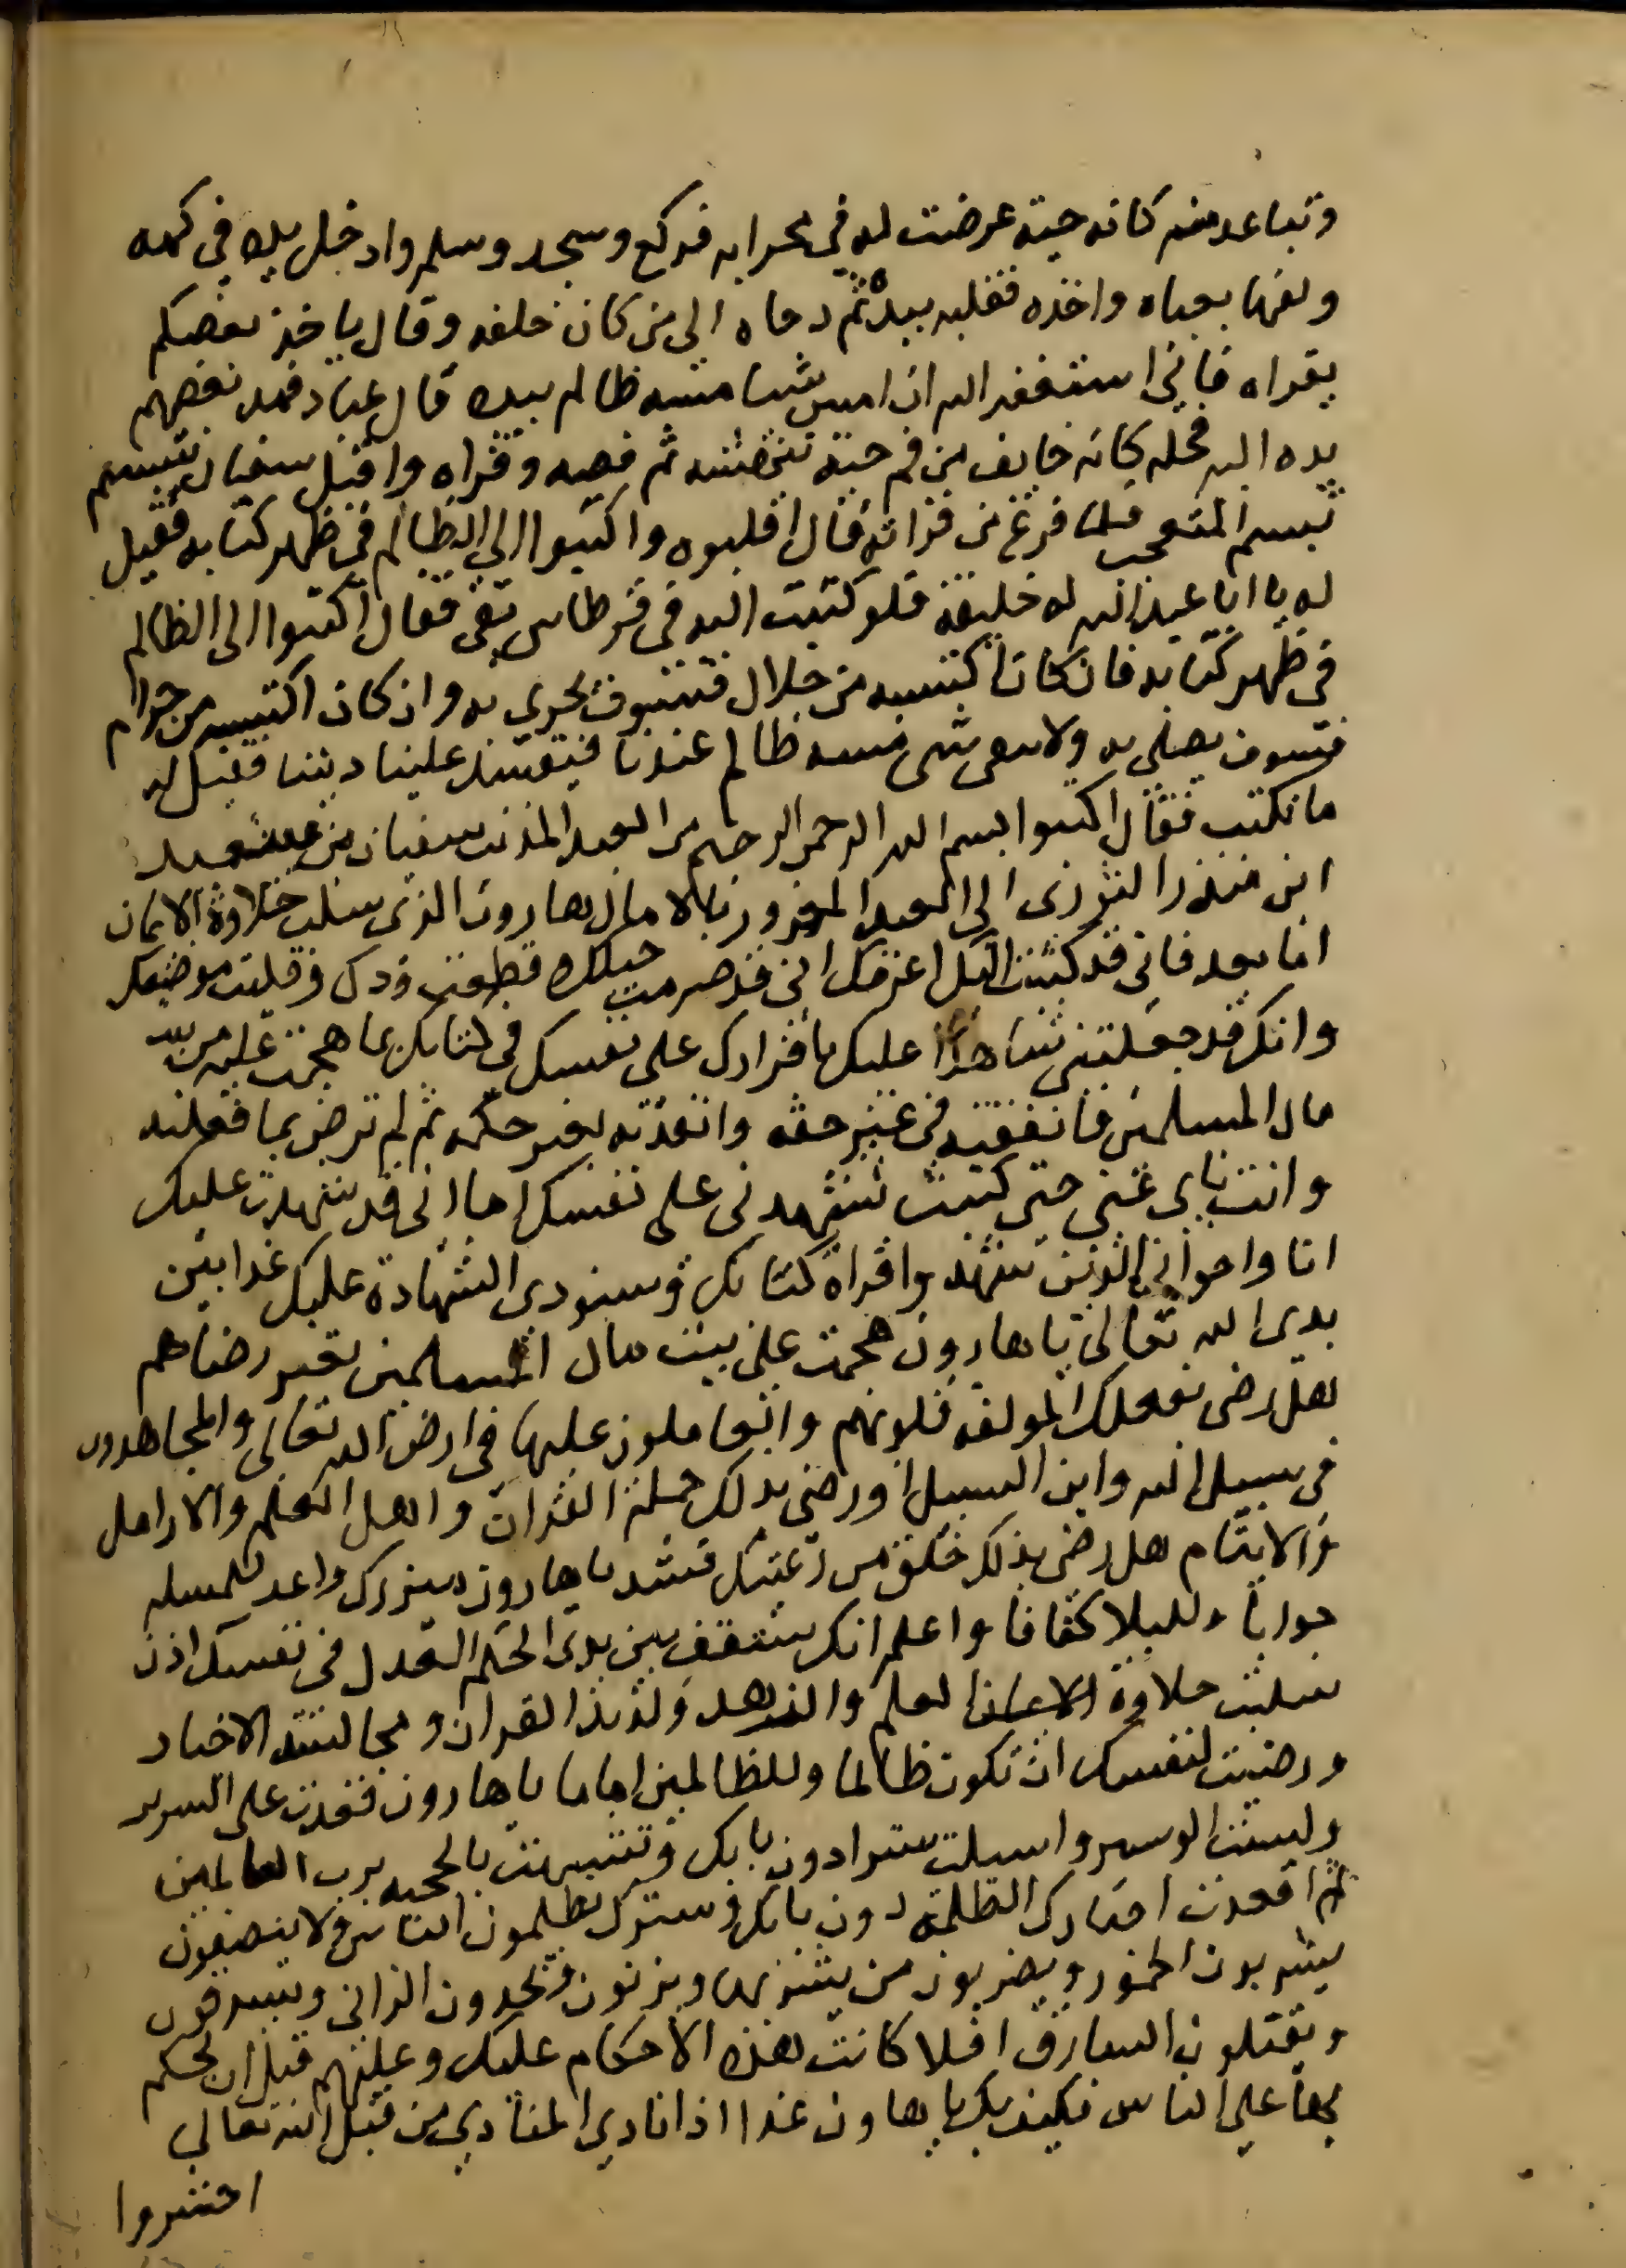 وتباعد منه كانه حية عرضت له في محرابه فركع وسجد وسلم وادخل يده في كمه
ولفها بعباه واخذه فقلبه بيده ثم دحاه الى من كان خلفه وقال ياخذ بعضكم
يقراه فاني استغفر الله ان امس شيا مسه ظالم بيده قال عباد فمد بعضهم
يده اليه فحله كانه خايف من فم حية تنهشه ثم فضه وقراه واقبل سفيان يتبسم
تبسم المتعجب فلما فرغ من قراته قال اقلبوه واكتبوا الي الظالم في ظهر كتابه فقيل
له يا ابا عبد الله له خليفة فلو كتبت اليه في قرطاس نقي فقال اكتبوا الى الظالم
في ظهر كتابه فان كان اكتسبه من حلال فسوف يجزي به وان كان اكتسبه من حرام
فسوف يصلى به ولا يبقى شي مسه ظالم عندنا فيفسد علينا ديننا فقيل له
ما نكتب فقال اكتبوا بسم الله الرحمن الرحيم من العبد المذنب سفيان بن سعيد
ابن منذر الثوري الى العبد المغرور بالامال هارون الذي سلب حلاوة الايمان
اما بعد فاني قد كتبت اليك اعرفك اني قد صرمت حبلك وقطعت ودك وقليت موضعك
وانك قد جعلتني شاهدا عليك باقرارك على نفسك في كتابك بما هجمت عليه من بيت
مال المسلمين فانفقته في غير حقه وانفذته بغير حكمه ثم لم ترض بما فعلته
وانت ناي عني حتى كتبت تشهدني على نفسك اما اني قد شهدت عليك
انا واخواني الذين شهدوا قراة كتابك وسنودى الشهادة عليك غدا بين
يدى الله تعالى يا هارون هجمت على بيت مال المسلمين بغير رضاهم
هل رضى بفعلك المولفه قلوبهم والعاملون عليها في ارض الله تعالى والمجاهدون
في سبيل الله وابن السبيل او رضى بذلك حملة القران واهل العلم والارامل
والايتام هل رضى بذلك خلق من رعيتك فشد يا هارون ميزرك واعد للمسله
جوابا وللبلا كفافا واعلم انك ستقف بين يدى الحكم العدل في نفسك اذن
سلبت حلاوة العلم والزهد ولذيذ القران ومجالسة الاخيار
ورضيت لنفسك ان تكون ظالما وللظالمين اماما يا هارون قعدت على السرير
ولبست واسبلت سترا دون بابك وتشبهت بالحجبه برب العالمين
ثم اقعدت اجنادك الظلمة دون بابك وسترك يظلمون الناس ولا ينصفون
يشربون الخمور ويضربون من يشربها ويزنون ويحدون الزاني ويسرقون
ويقتلون السارق افلا كانت هذه الاحكام عليك وعليهم قبل ان تحكم
بها على الناس فكيف بك يا هاون غدا اذا نادي المنادي من قبل الله تعالى
احشروا